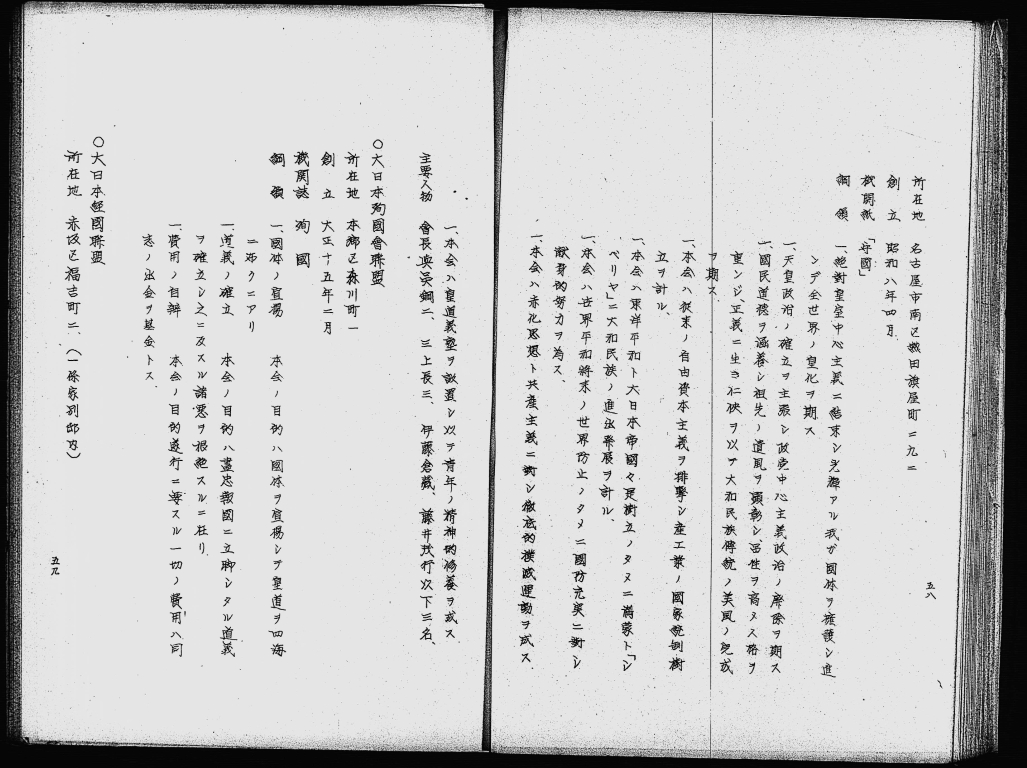 所在地 名古屋市南区熱田旗屋町二九二
創立 昭和八年四月
機関紙 「年國」
綱領 一、絶対皇室中心主義ニ結束シ光輝アル我ガ國体ヲ擁護シ進
ンデ全世界ノ皇化ヲ期ス
一、天皇政治ノ確立ヲ主張シ政党中心主義政治ノ廃除ヲ期ス
一、國民道徳ヲ涵養シ祖先ノ道風ヲ顕彰シ 性ヲ高メ人格ヲ
重ンジ、正義ニ生き仁侠ヲ以テ大和民族傳統ノ美風ノ完成
ヲ期ス
一、本会ハ従来ノ自由資本主義ヲ排撃シ産工業ノ國家統制樹
立ヲ計ル、
一、本会ハ東洋平和ト大日本帝國々是樹立ノタメニ満蒙ト「シ
ベリヤ」ニ大和民族ノ進出発展ヲ計ル、
一、本会ハ世界平和将来ノ世界防止ノタメニ國防充実ニ対シ
献身的努力ヲ為ス、
一、本会ハ赤化思想ト共産主義ニ対シ徹底的撲滅運動ヲ成ス、
五八
一、本会ハ皇道義塾ヲ設置シ以テ青年ノ精神的修養ヲ成ス
主要人物 會長 呉鋼二、三上長三、伊藤倉蔵、藤井茂行以下三名、
○大日本殉國會聯盟
所在地 本郷区森川町一
創立 大正十五年二月
機関誌 殉國
綱領 一、國体ノ宣揚 本会ノ目的ハ國体ヲ宣揚シテ皇道ヲ四海
ニ布クニアリ
一、道義ノ確立 本会ノ目的ハ盡忠報國ニ立脚シタル道義
ヲ確立シ之ニ反スル諸悪ヲ根絶スルニ在リ、
一、費用ノ自辨 本会ノ目的遂行ニ要スル一切ノ費用ハ同
志ノ出金ヲ基金トス、
○大日本経國聯盟
所在地 赤坂区福吉町二、(一條家別邸内)
五九